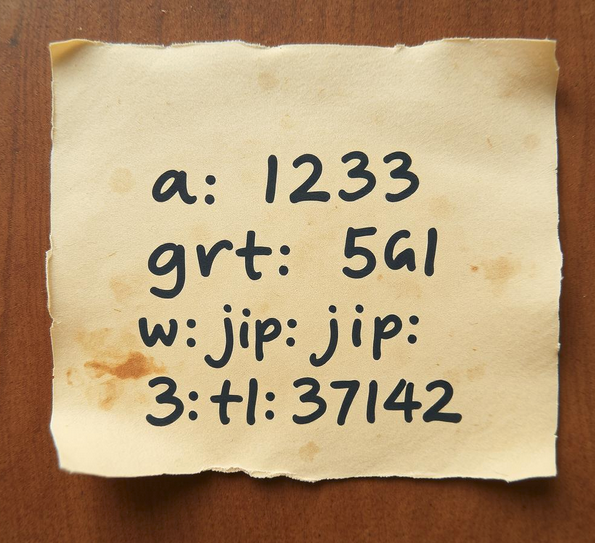 a: 1233
grt: 5G1
w: jip: jip:
3: tl: 37142